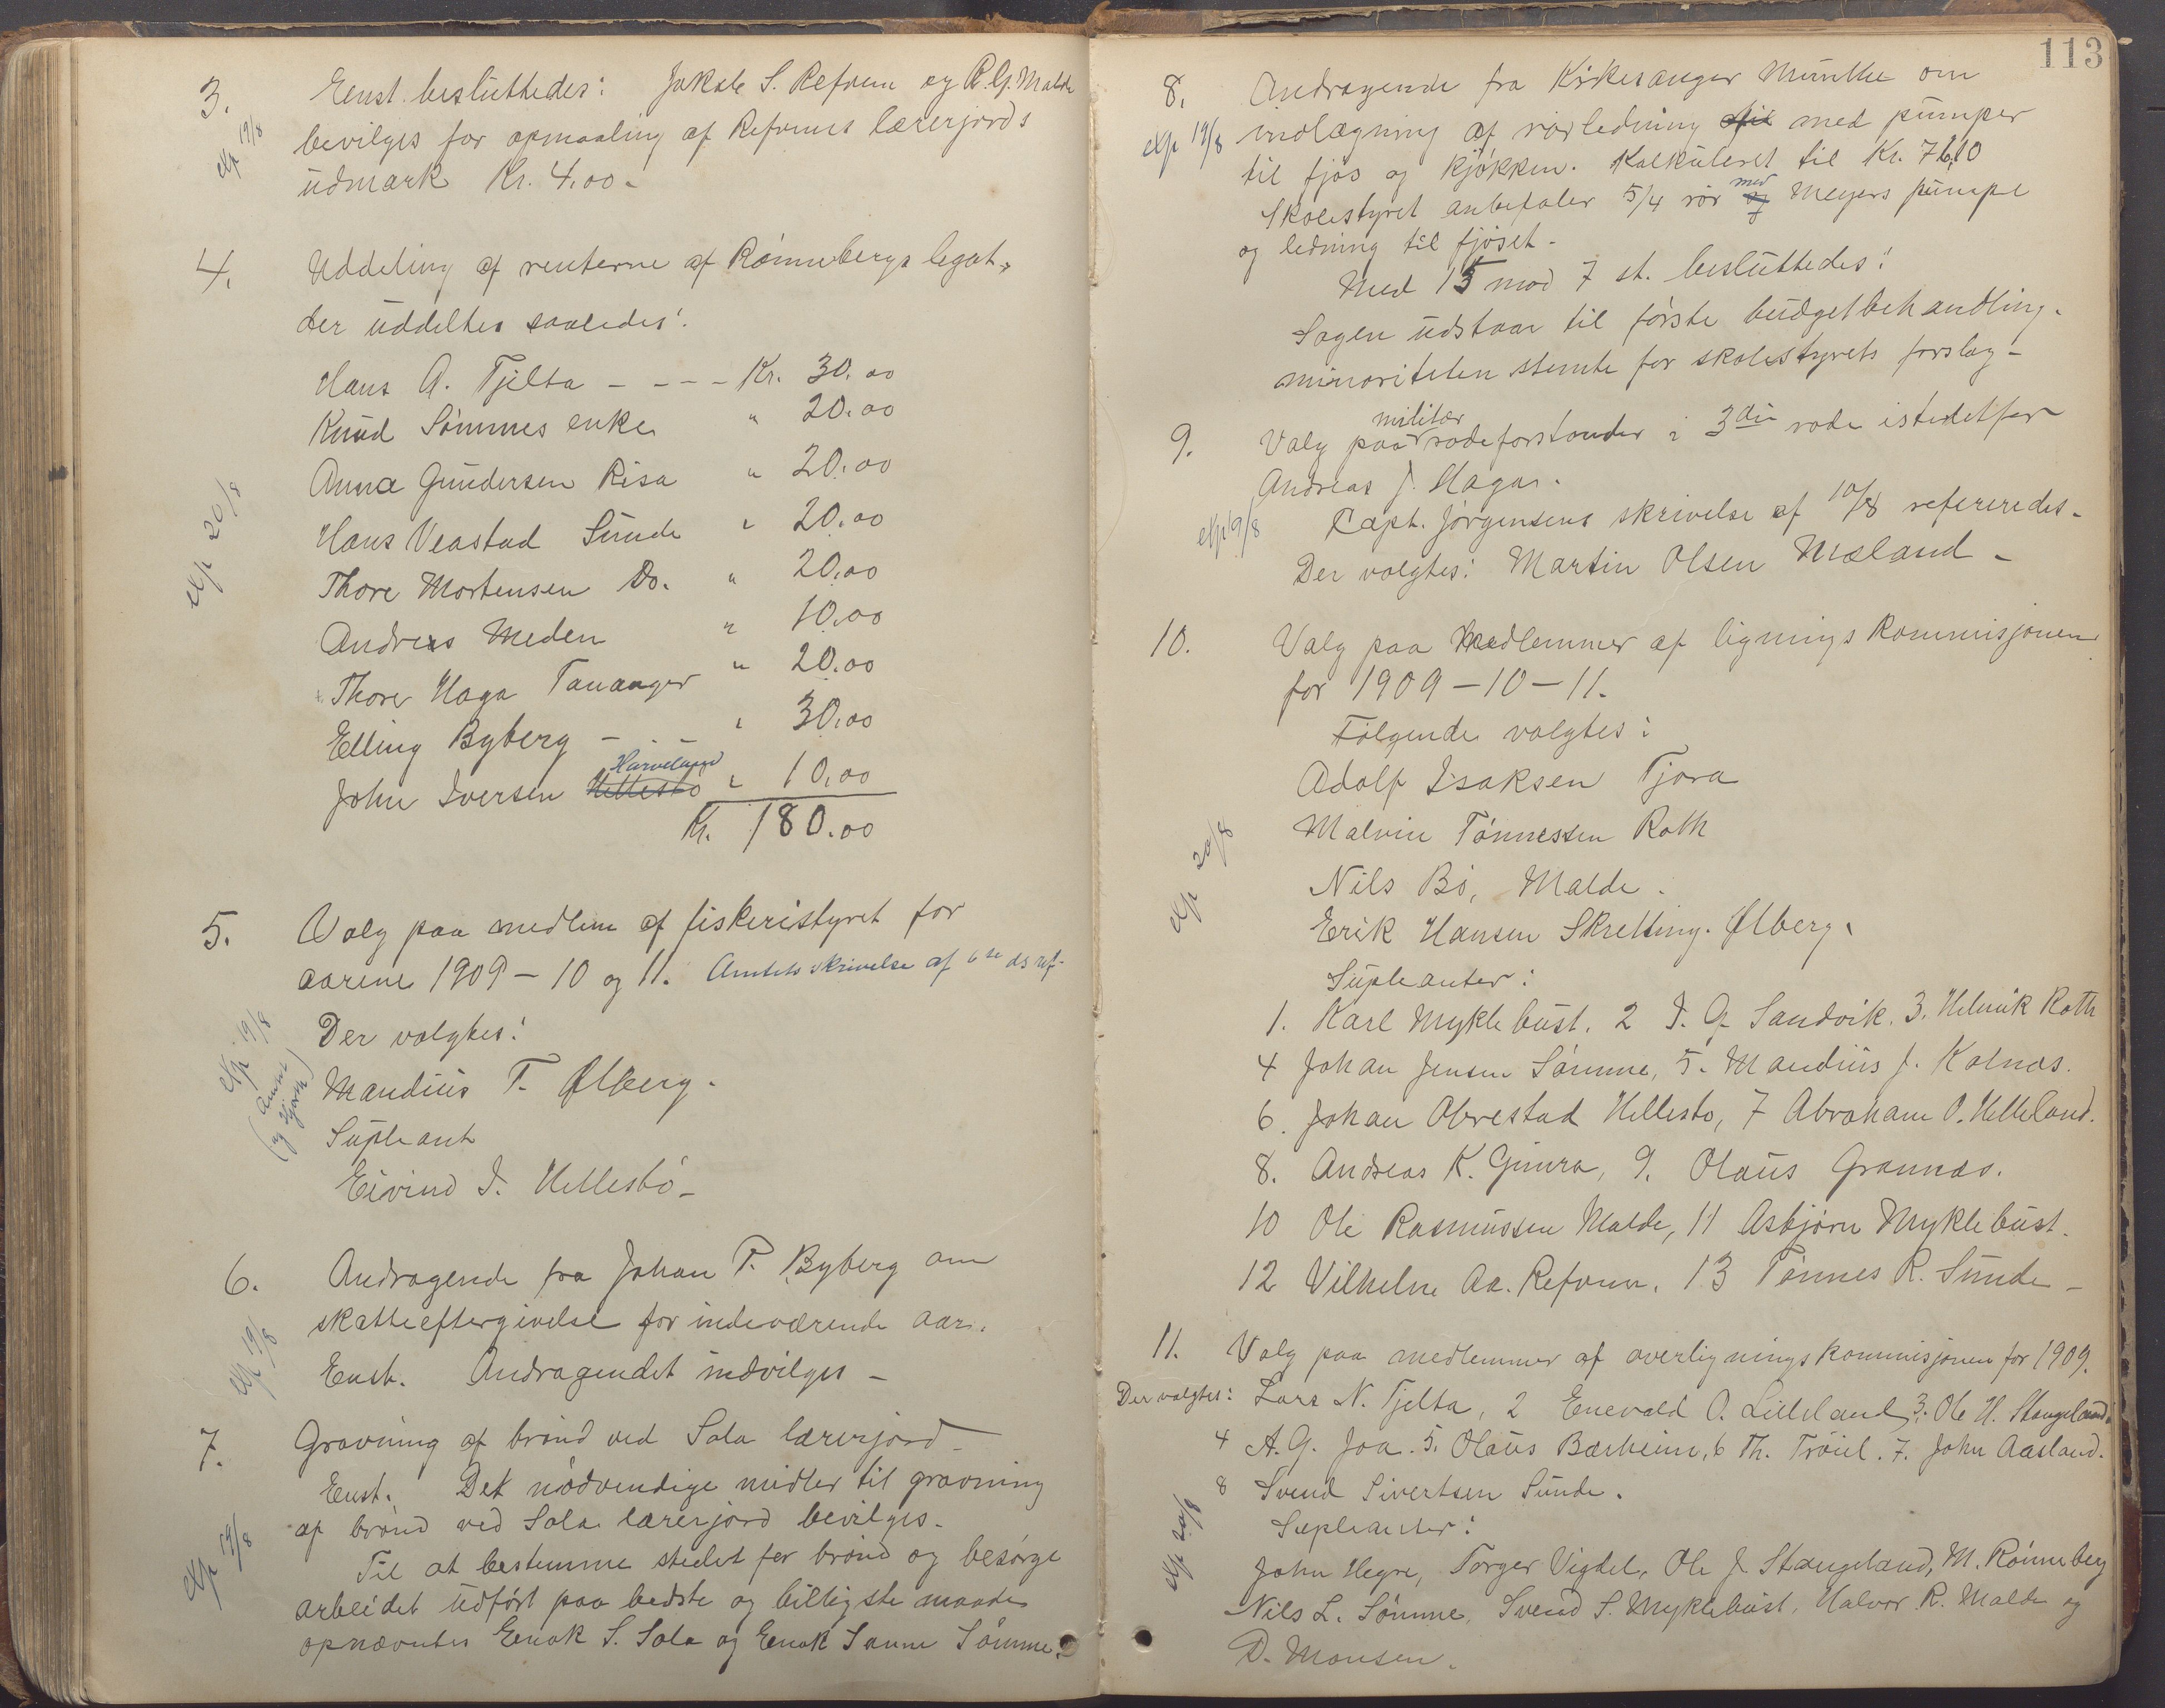 3. Enst. besluttedes: Jakob S. Refsnes og R. G. Malde
exp 19/8
bevilges for opmaaling af Refsnes lærerjords
udmark Kr. 4.00 -
4. Uddeling af renterne af Rønnebergs legat,
der uddeltes saaledes:
Hans A. Tjelta - - - - Kr. 30.00
Knud Sømmes enke " 20.00
Anna Gundersen Risa " 20.00
exp 20/8
Hans Veastad Sunde " 20.00
Thore Mortensen Do. " 20.00
Andreas Meden " 10.00
Thore Haga Tananger " 20.00
Elling Byberg - - - " 30.00
Harveland
John Iversen Hellestø " 10.00
Kr. 180.00
5. Valg paa medlem af fiskeristyret for
aarene 1909 - 10 og 11. Amtets skrivelse af 6te ds ref.
exp 19/8
Der valgtes:
Mandius T. Ølberg.
Supleant
Eivind I. Hellestø -
6. Andragende fra Johan P. Byberg om
skatteeftergivelse for indeværende aar.
exp 19/8
Enst. Andragendet indvilges -
7. Gravning af brønd ved Sola lærerjord -
Enst. Det nødvendige midler til gravning
af brønd ved Sola lærerjord bevilges -
exp 19/8
Til at bestemme stedet for brønd og besørge
arbeidet udført paa bedste og billigste maade
opnævntes Enok S. Sola og Enok Sømme.
113
8. Andragende fra Kirkesanger Munthe om
exp 19/8
indlægning af rørledning til med pumper
til fjøs og kjøkken. Kalkuleret til Kr. 76,10
Skolestyret anbefaler 5/4 rør og med Meyers pumpe
og ledning til fjøset -
Med 15 mod 7 st. besluttedes:
Sagen udstaar til første budgetbehandling.
minoriteten stemte for skolestyrets forslag -
9. Valg paa militær rodeforstander i 3die rode istedetfor
Andreas J. Haga.
exp 19/8
Capt. Jørgensens skrivelse af 10/8 refereredes -
Der valgtes: Martin Olsen Mæland -
10. Valg paa Medlemmer af lignings kommisjonen
for 1909 - 10 - 11.
Følgende valgtes:
Adolf Isaksen Tjora
Malvin Tønnessen Roth
exp 20/8
Nils Bø, Malde.
Erik Hansen Skretting. Ølberg.
Supleanter:
1. Karl Myklebust, 2 I. G. Sandvik. 3. Helmik Roth
4 Johan Jensen Sømme, 5. Mandius J. Kolnæs.
6. Johan Obrestad Hellestø, 7 Abraham O. Helleland.
8. Andreas K. Gimra, 9. Olaus Grannæs.
10 Ole Rasmussen Malde, 11 Asbjørn Myklebust.
12 Vilhelm Aa. Refsnes, 13 Tønnes R. Sunde -
11. Valg paa medlemmer af overligningskommisjonen for 1909.
Der valgtes: Lars N. Tjelta, 2 Enevald O. Lilleland, 3. Ole H. Stangeland.
4 A. G. Joa. 5. Olaus Bærheim, 6 Th. Trøiel. 7. John Aasland.
8 Svend Sivertsen Sunde.
exp 20/8
Supleanter:
John Hegre, Torger Vigdel, Ole J. Stangeland, M. Rønneberg
Nils L. Sømme, Svend S. Myklebust, Halvor R. Malde og
D. Monsen.